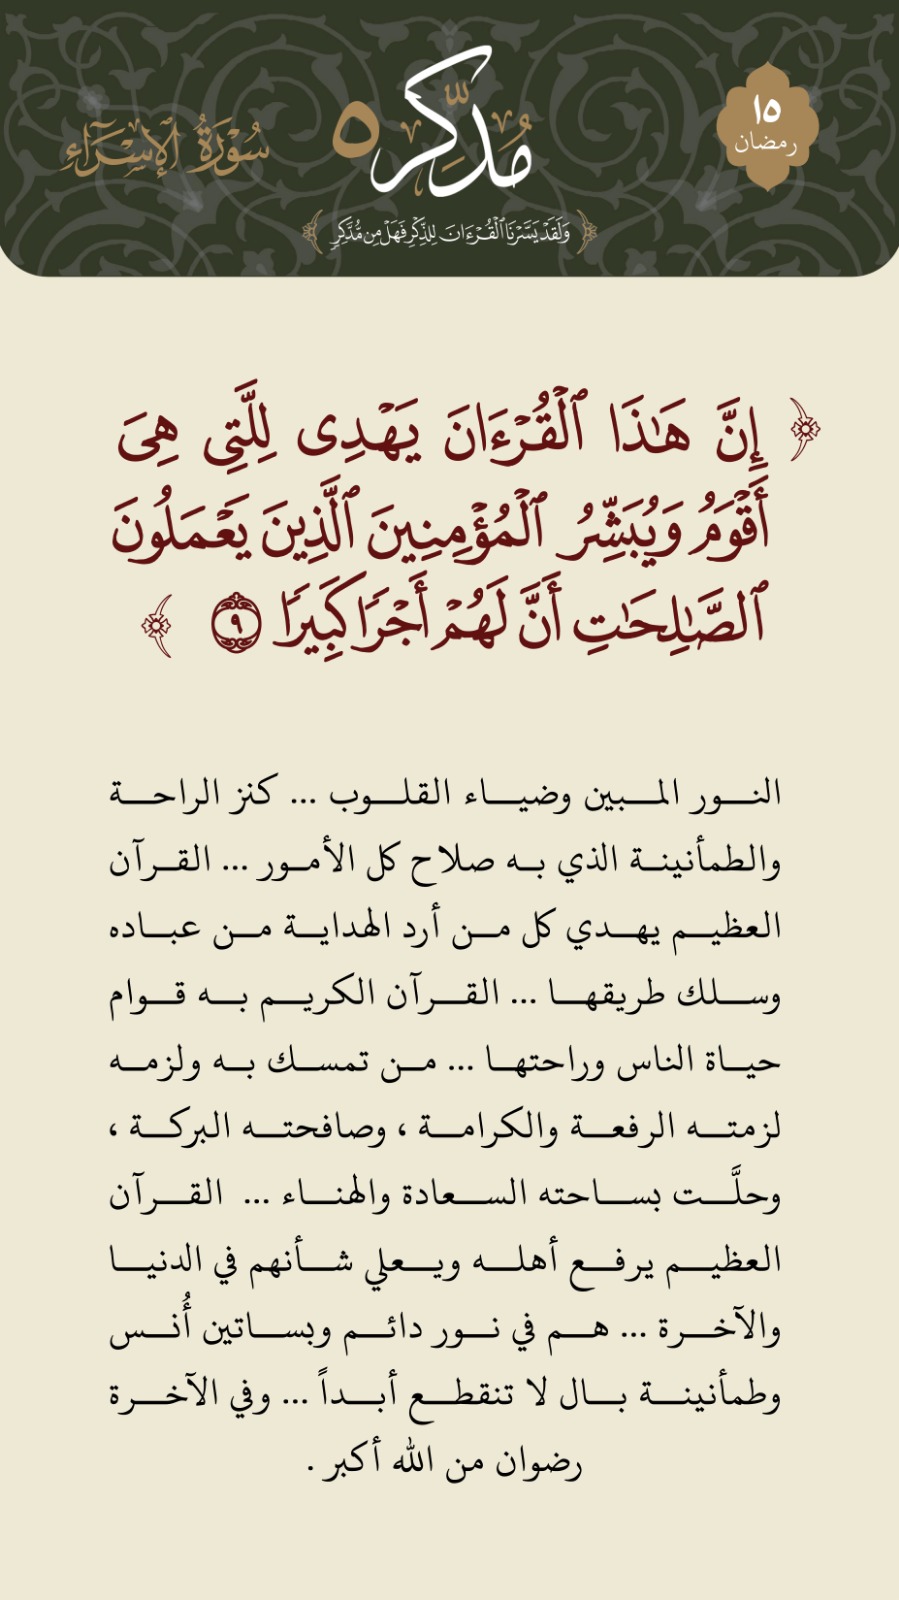 ١٥
رمضان
مُدَّكِر ٥
سُورَةُ ٱلْإِسْرَاءِ
وَلَقَدْ يَسَّرْنَا ٱلْقُرْءَانَ لِلذِّكْرِ فَهَلْ مِن مُّدَّكِرٍ
﴿ إِنَّ هَٰذَا ٱلْقُرْءَانَ يَهْدِى لِلَّتِى هِىَ
أَقْوَمُ وَيُبَشِّرُ ٱلْمُؤْمِنِينَ ٱلَّذِينَ يَعْمَلُونَ
ٱلصَّٰلِحَٰتِ أَنَّ لَهُمْ أَجْرًا كَبِيرًا ٩ ﴾
النور المبين وضياء القلوب ... كنز الراحة
والطمأنينة الذي به صلاح كل الأمور ... القرآن
العظيم يهدي كل من أرد الهداية من عباده
وسلك طريقها ... القرآن الكريم به قوام
حياة الناس وراحتها ... من تمسك به ولزمه
لزمته الرفعة والكرامة ، وصافحته البركة ،
وحلَّت بساحته السعادة والهناء ... القرآن
العظيم يرفع أهله ويعلي شأنهم في الدنيا
والآخرة ... هم في نور دائم وبساتين أُنس
وطمأنينة بال لا تنقطع أبداً ... وفي الآخرة
رضوان من الله أكبر .